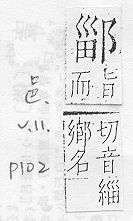 旨
而
切音緇
鄉名
邑.
v.11.
p102